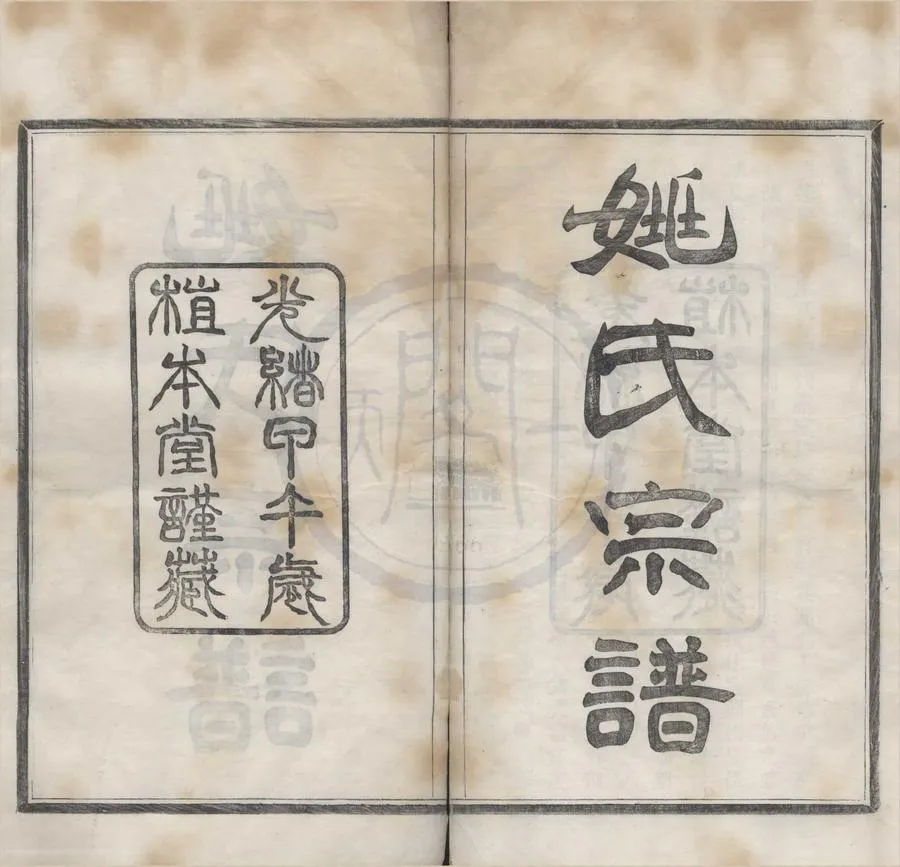 姚氏宗譜
光緒甲午歲
植本堂謹藏